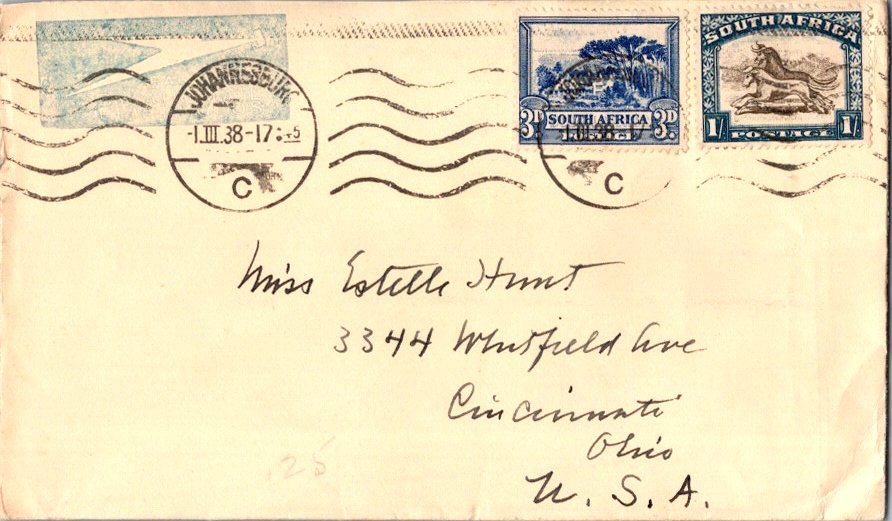 JOHANNESBURG
-1.III.38-17
C
JOHANNESBURG
-1.III.38-17
C
3D SOUTH AFRICA 3D
SOUTH AFRICA
1/- POSTAGE 1/-
Miss Estelle Hunt
3344 Whitfield Ave
Cincinnati
Ohio
U. S. A.
25